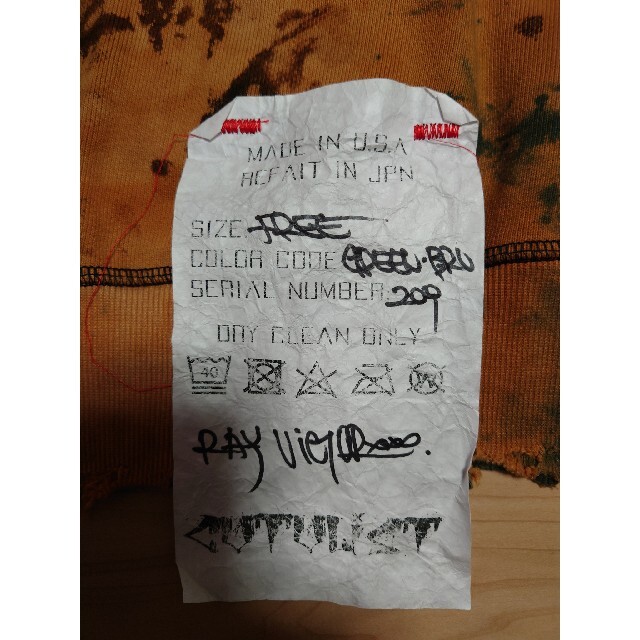 MADE IN U.S.A
REFAIT IN JPN
SIZE FREE
COLOR CODE GREEN·BRN
SERIAL NUMBER 209
DRY CLEAN ONLY
40
RAY